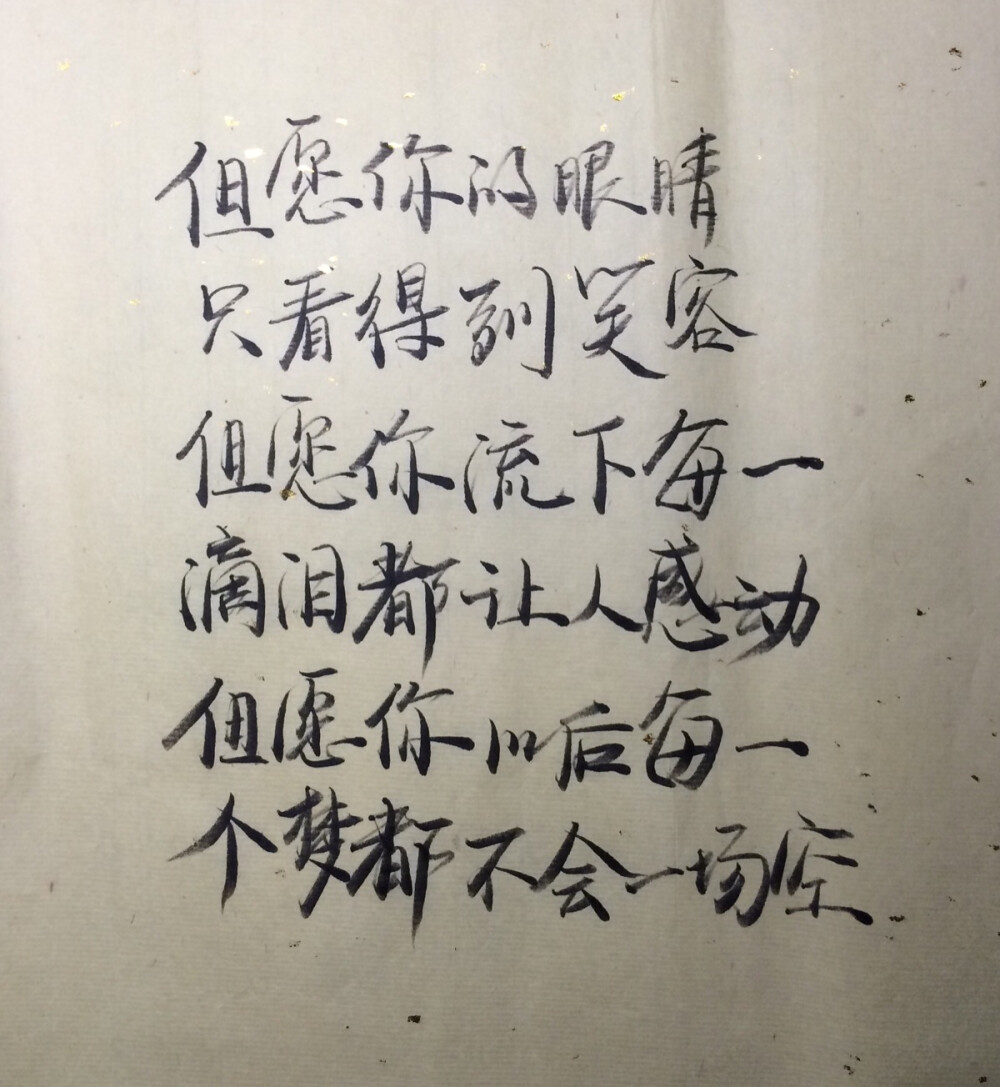 但愿你的眼睛
只看得到笑容
但愿你流下每一
滴泪都让人感动
但愿你以后每一
个梦都不会一场空